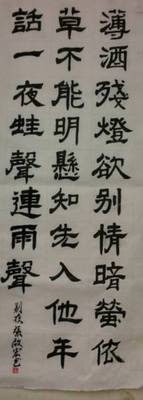 薄酒殘燈欲别情暗螢依
草不能明懸知先入他年
話一夜蛙聲連雨聲
别夜張